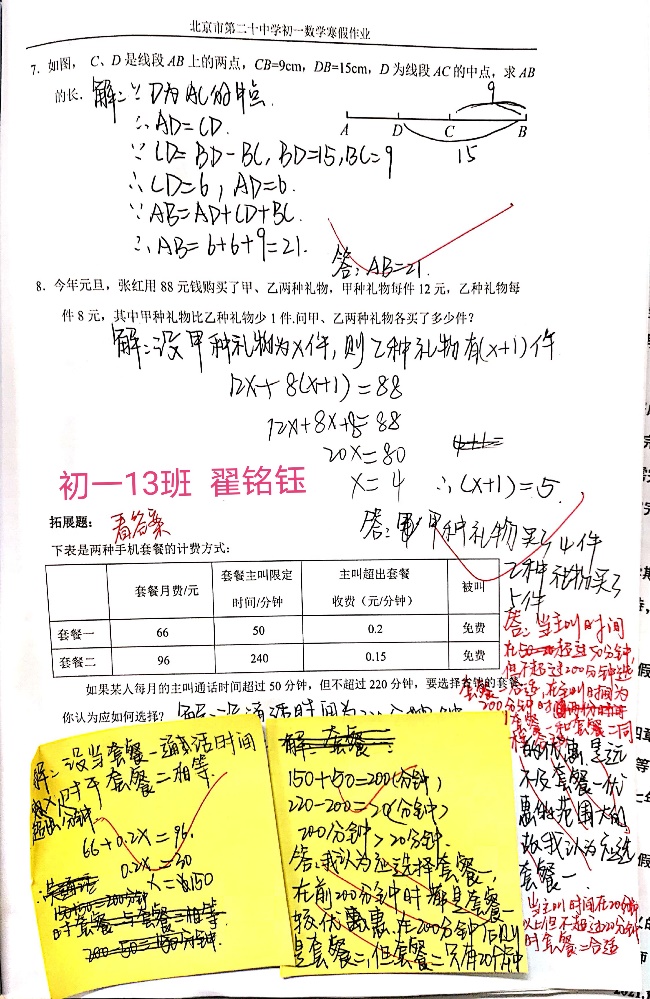 北京市第二十中学初一数学寒假作业
7. 如图， C、D 是线段 AB 上的两点，CB=9cm，DB=15cm，D 为线段 AC 的中点，求 AB
的长. 解：∵D为AC的中点
∴AD=CD.
∵CD=BD-BC, BD=15, BC=9
∴CD=6, AD=6.
∵AB=AD+CD+BC
∴AB=6+6+9=21.
答：AB=21.
9
A D C B
15
8. 今年元旦，张红用 88 元钱购买了甲、乙两种礼物，甲种礼物每件 12 元，乙种礼物每
件 8 元，其中甲种礼物比乙种礼物少 1 件.问甲、乙两种礼物各买了多少件？
解：设甲种礼物为x件，则乙种礼物有(x+1)件
12x+8(x+1)=88
12x+8x+8=88
20x=80
x=4 ∴(x+1)=5.
答：甲种礼物买了4件
乙种礼物买了
5件
初一13班 翟铭钰
拓展题： 看答案
下表是两种手机套餐的计费方式：
套餐月费/元 套餐主叫限定时间/分钟 主叫超出套餐收费（元/分钟） 被叫
套餐一 66 50 0.2 免费
套餐二 96 240 0.15 免费
如果某人每月的主叫通话时间超过 50 分钟，但不超过 220 分钟，要选择合适的套餐
你认为应如何选择？ 解：设通话时间为
答：当主叫时间
在 超过50分钟
但不超过200分钟选
套餐一合适，在主叫时间为
200分钟时
套餐一和套餐二同
的优惠是远
不及套餐一优
惠的范围大的
故我认为应选
套餐一
当主叫时间在200分钟
以上但不超过220分钟
时套餐二合适
解：设当套餐一通话时间
超出x分钟时于套餐二相等.
66+0.2x=96.
0.2x=30
x=150
解：套餐一：
150+50=200(分钟)
220-200=20(分钟)
200分钟>20分钟.
答：我认为应选择套餐一，
在前200分钟时都是套餐一
较优惠，在200分钟后则
是套餐二，但套餐二只有20分钟